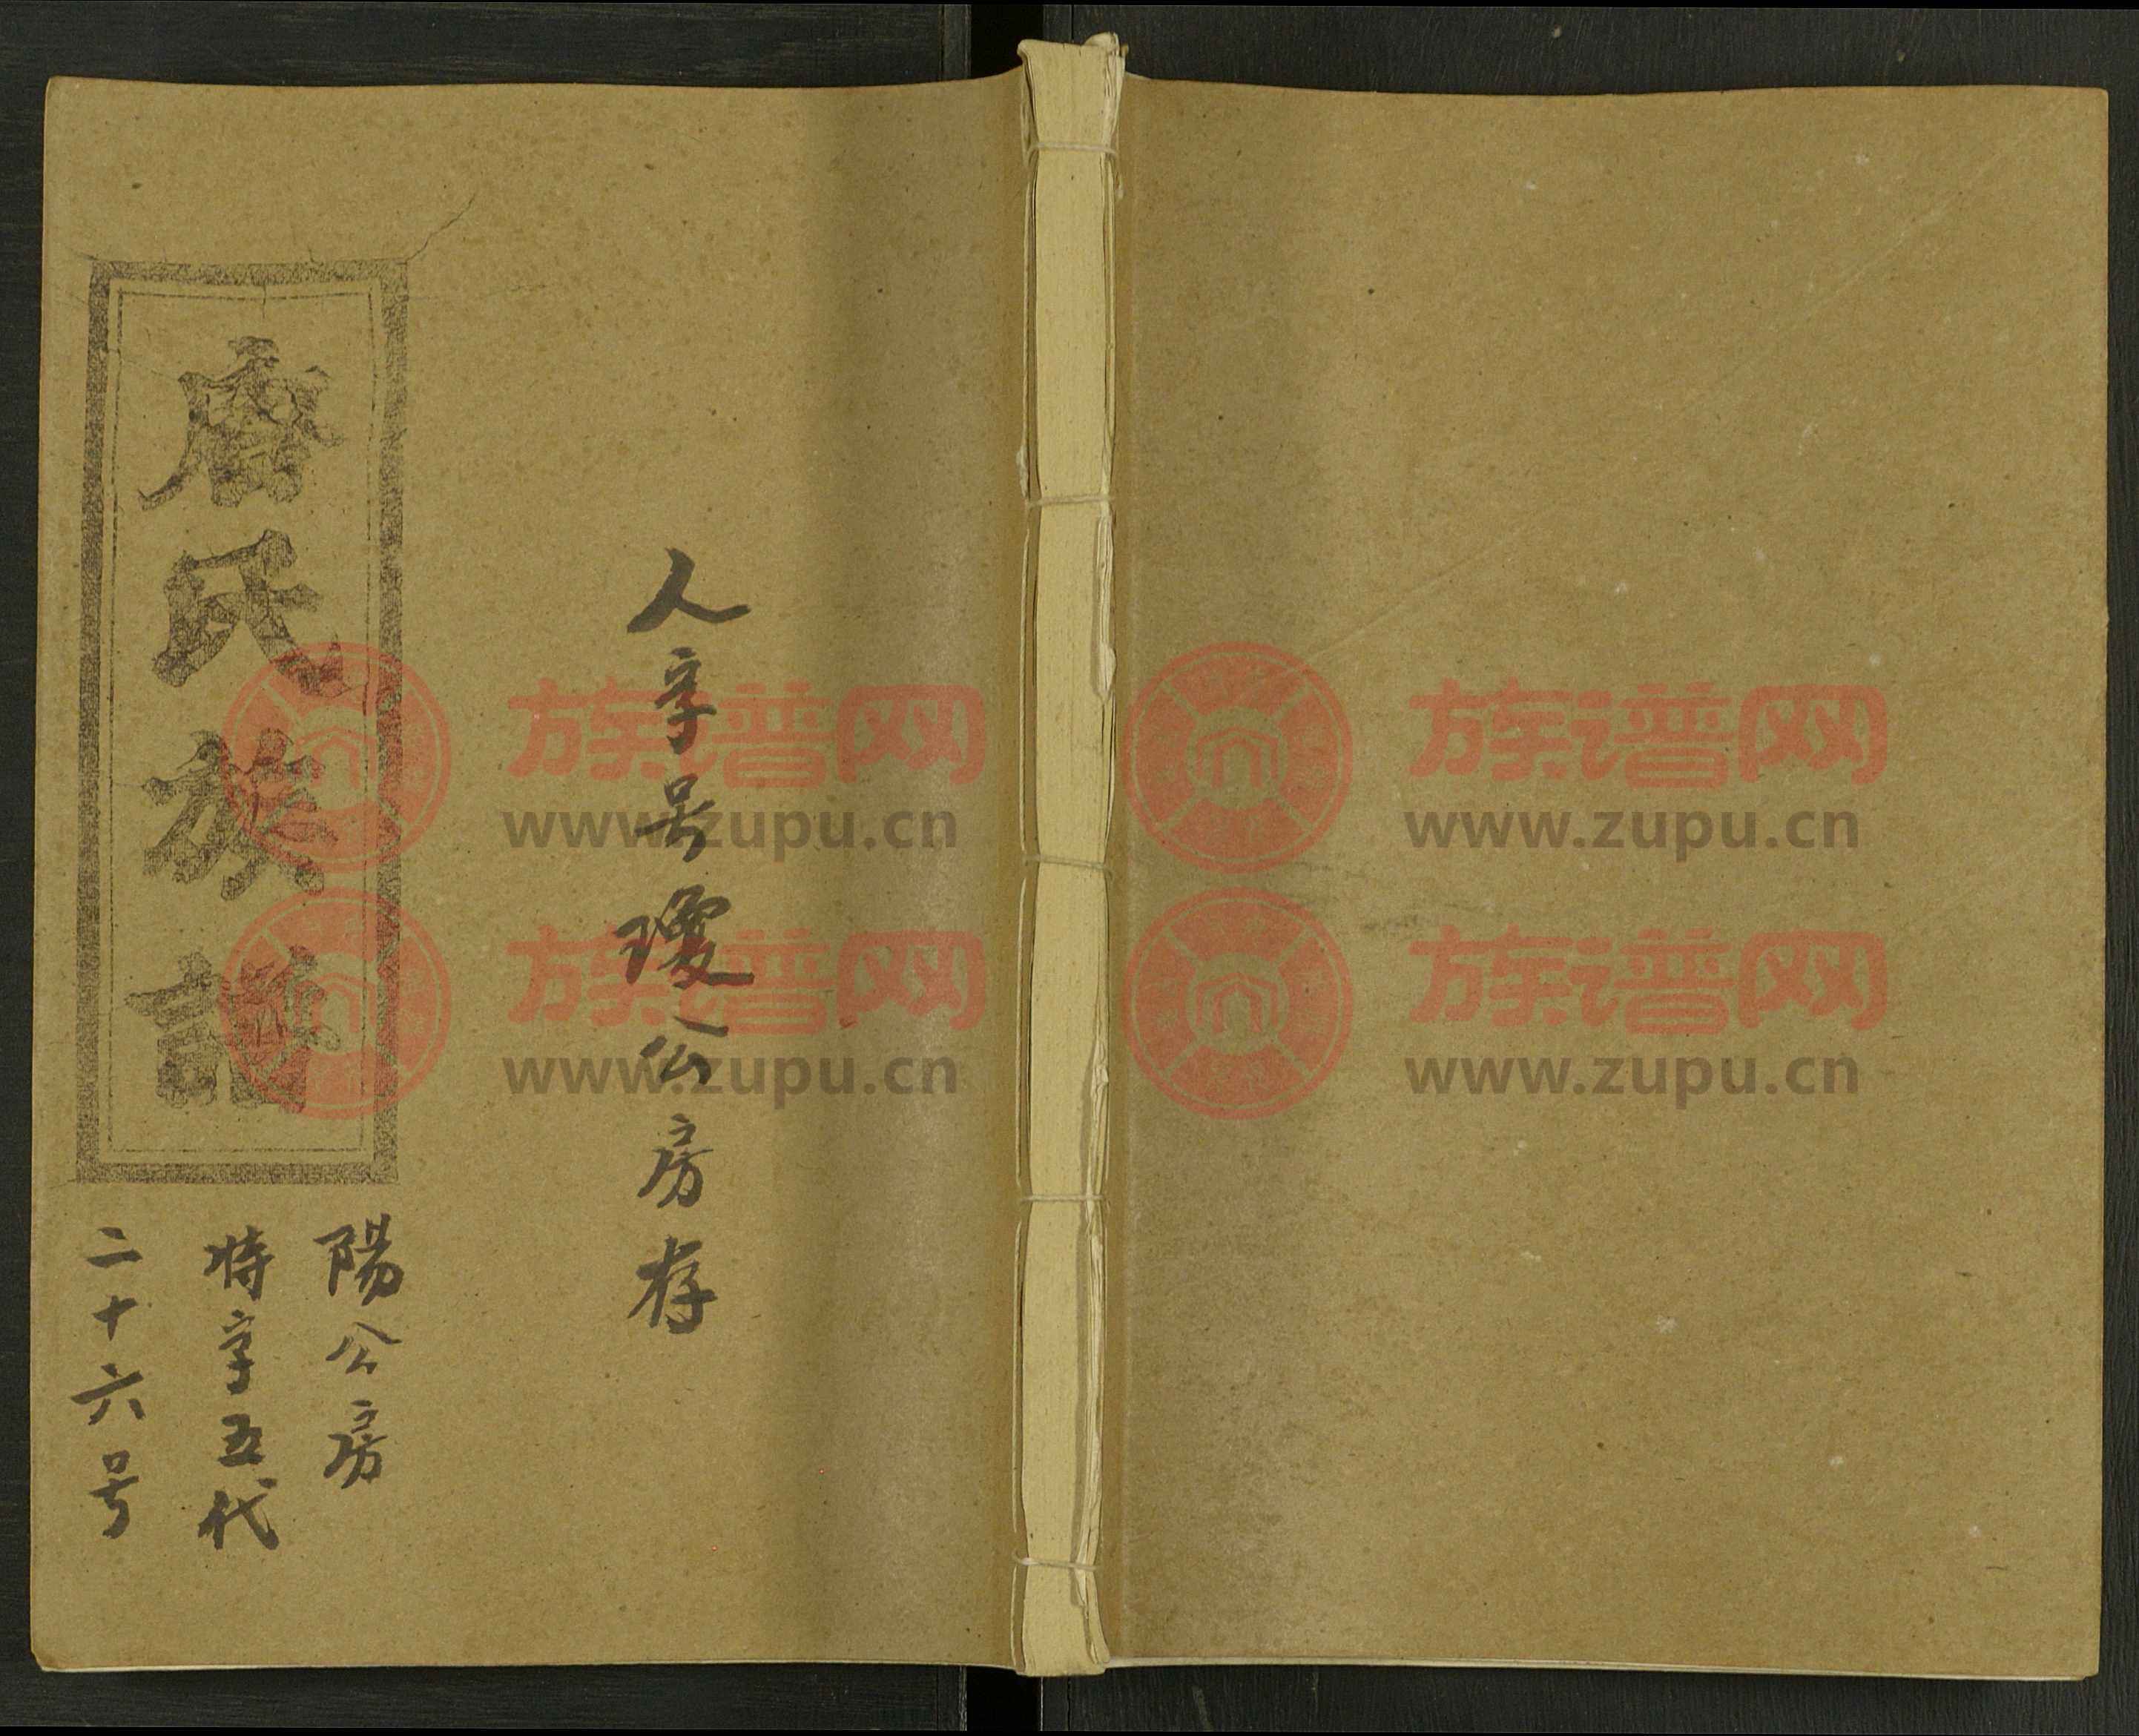 人字号瓊公房存
唐氏族譜
陽公房
字五代
二十六号
族谱网
www.zupu.cn
族谱网
www.zupu.cn
族谱网
www.zupu.cn
族谱网
www.zupu.cn